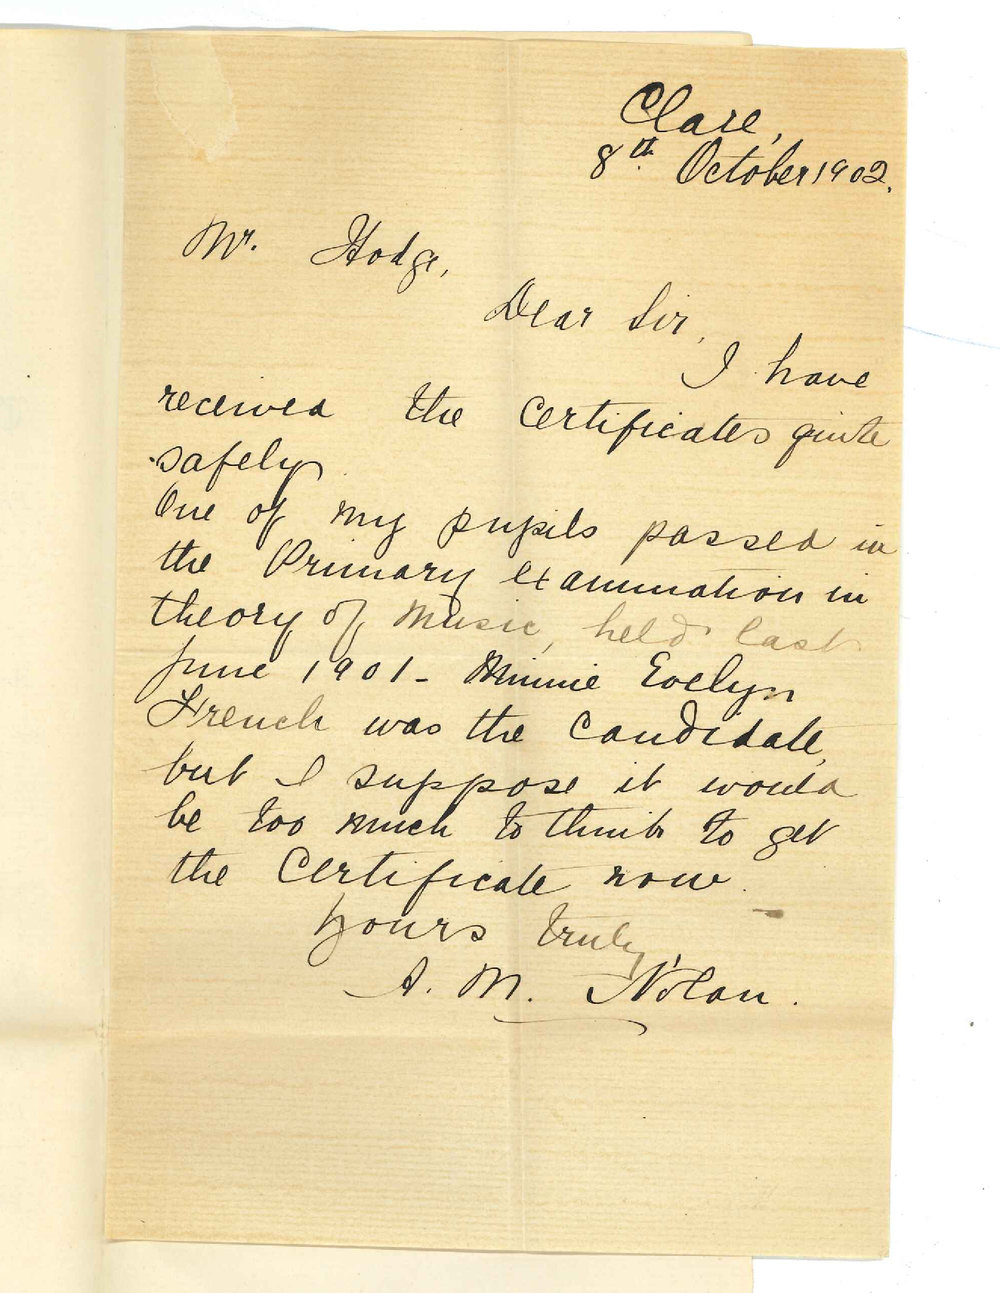 Clare,
8th October 1902.
Mr. Hodge,
Dear Sir,
I have
received the Certificates quite
safely
One of my pupils passed in
the Primary examination in
theory of Music, held last
June 1901 - Minnie Evelyn
French was the Candidate,
but I suppose it would
be too much to think to get
the Certificate now.
Yours truly,
A. M. Nolan.